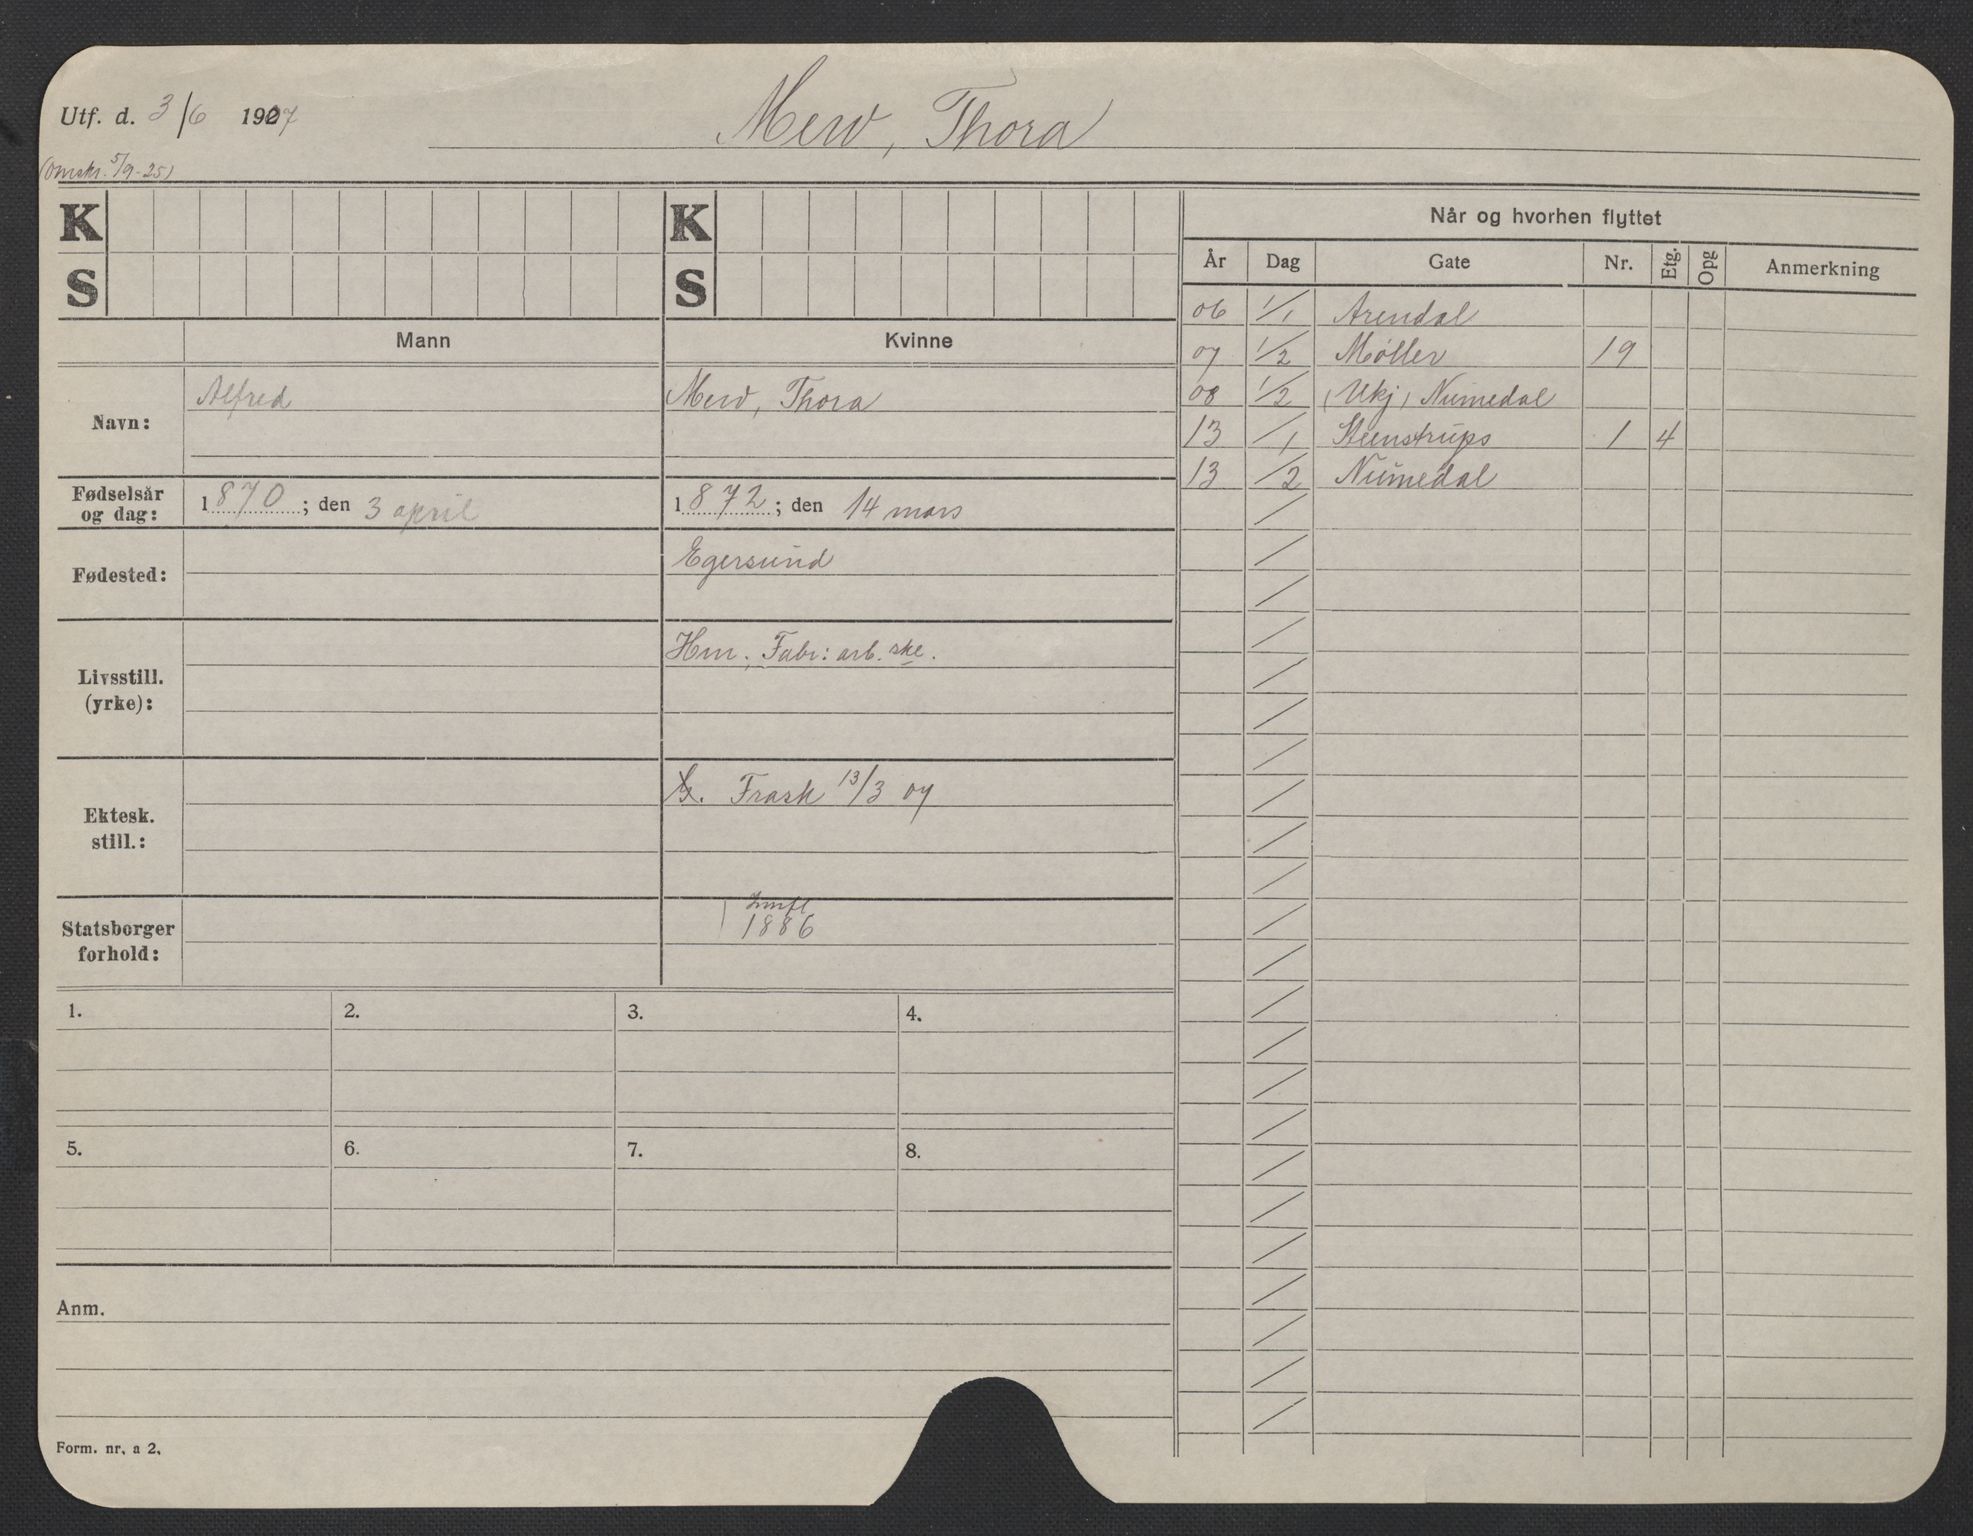 Utf. d. 3/6 1907
Merv, Thora
(Omskr. 5/9-25)
K
K
S
S
Når og hvorhen flyttet
År Dag Gate Nr. Etg. Opg Anmerkning
06 1/1 Arendal
07 1/2 Møller 19
08 1/2 (Ukj) Numedal
13 /1 Steenstrups 1 4
13 /2 Numedal
Mann Kvinne
Navn: Alfred Merv, Thora
Fødselsår og dag: 1870; den 3 april 1872; den 14 mars
Fødested: Egersund
Livsstill. (yrke): Hm. Fabr: arb. ske.
Ektesk. still.: Frask 13/3 07
Statsborger forhold: Innfl
1886
1. 2. 3. 4.
5. 6. 7. 8.
Anm.
Form. nr. a 2.